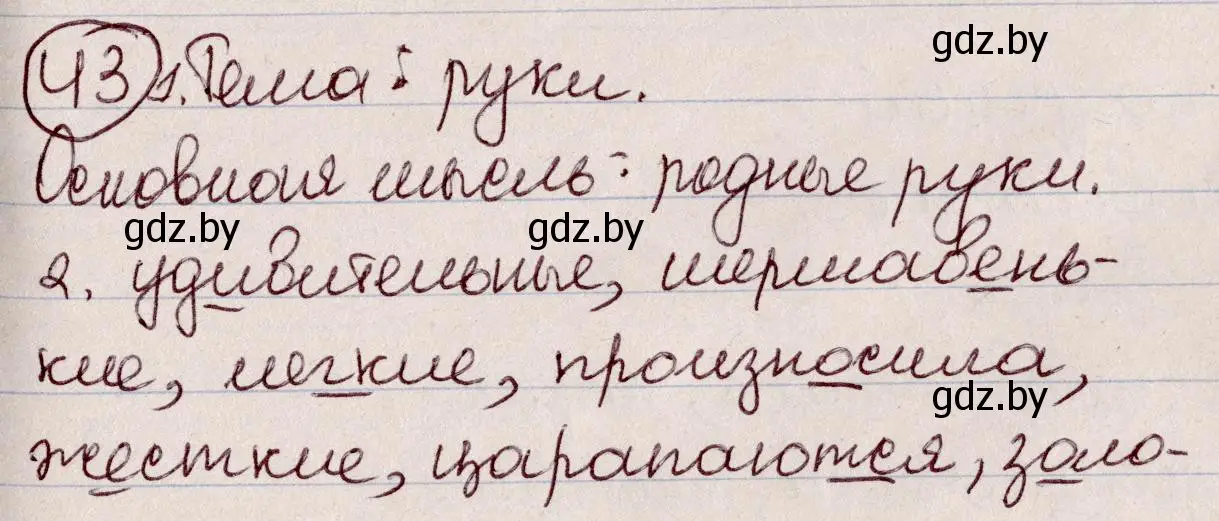 43 1. Тема: руки. gdz.by
Основная мысль: родные руки.
gdz.by gdz.by
2. удивительные, шершавень-
кие, легкие, произносила,
gdz.by
жесткие, царапаются, золо-